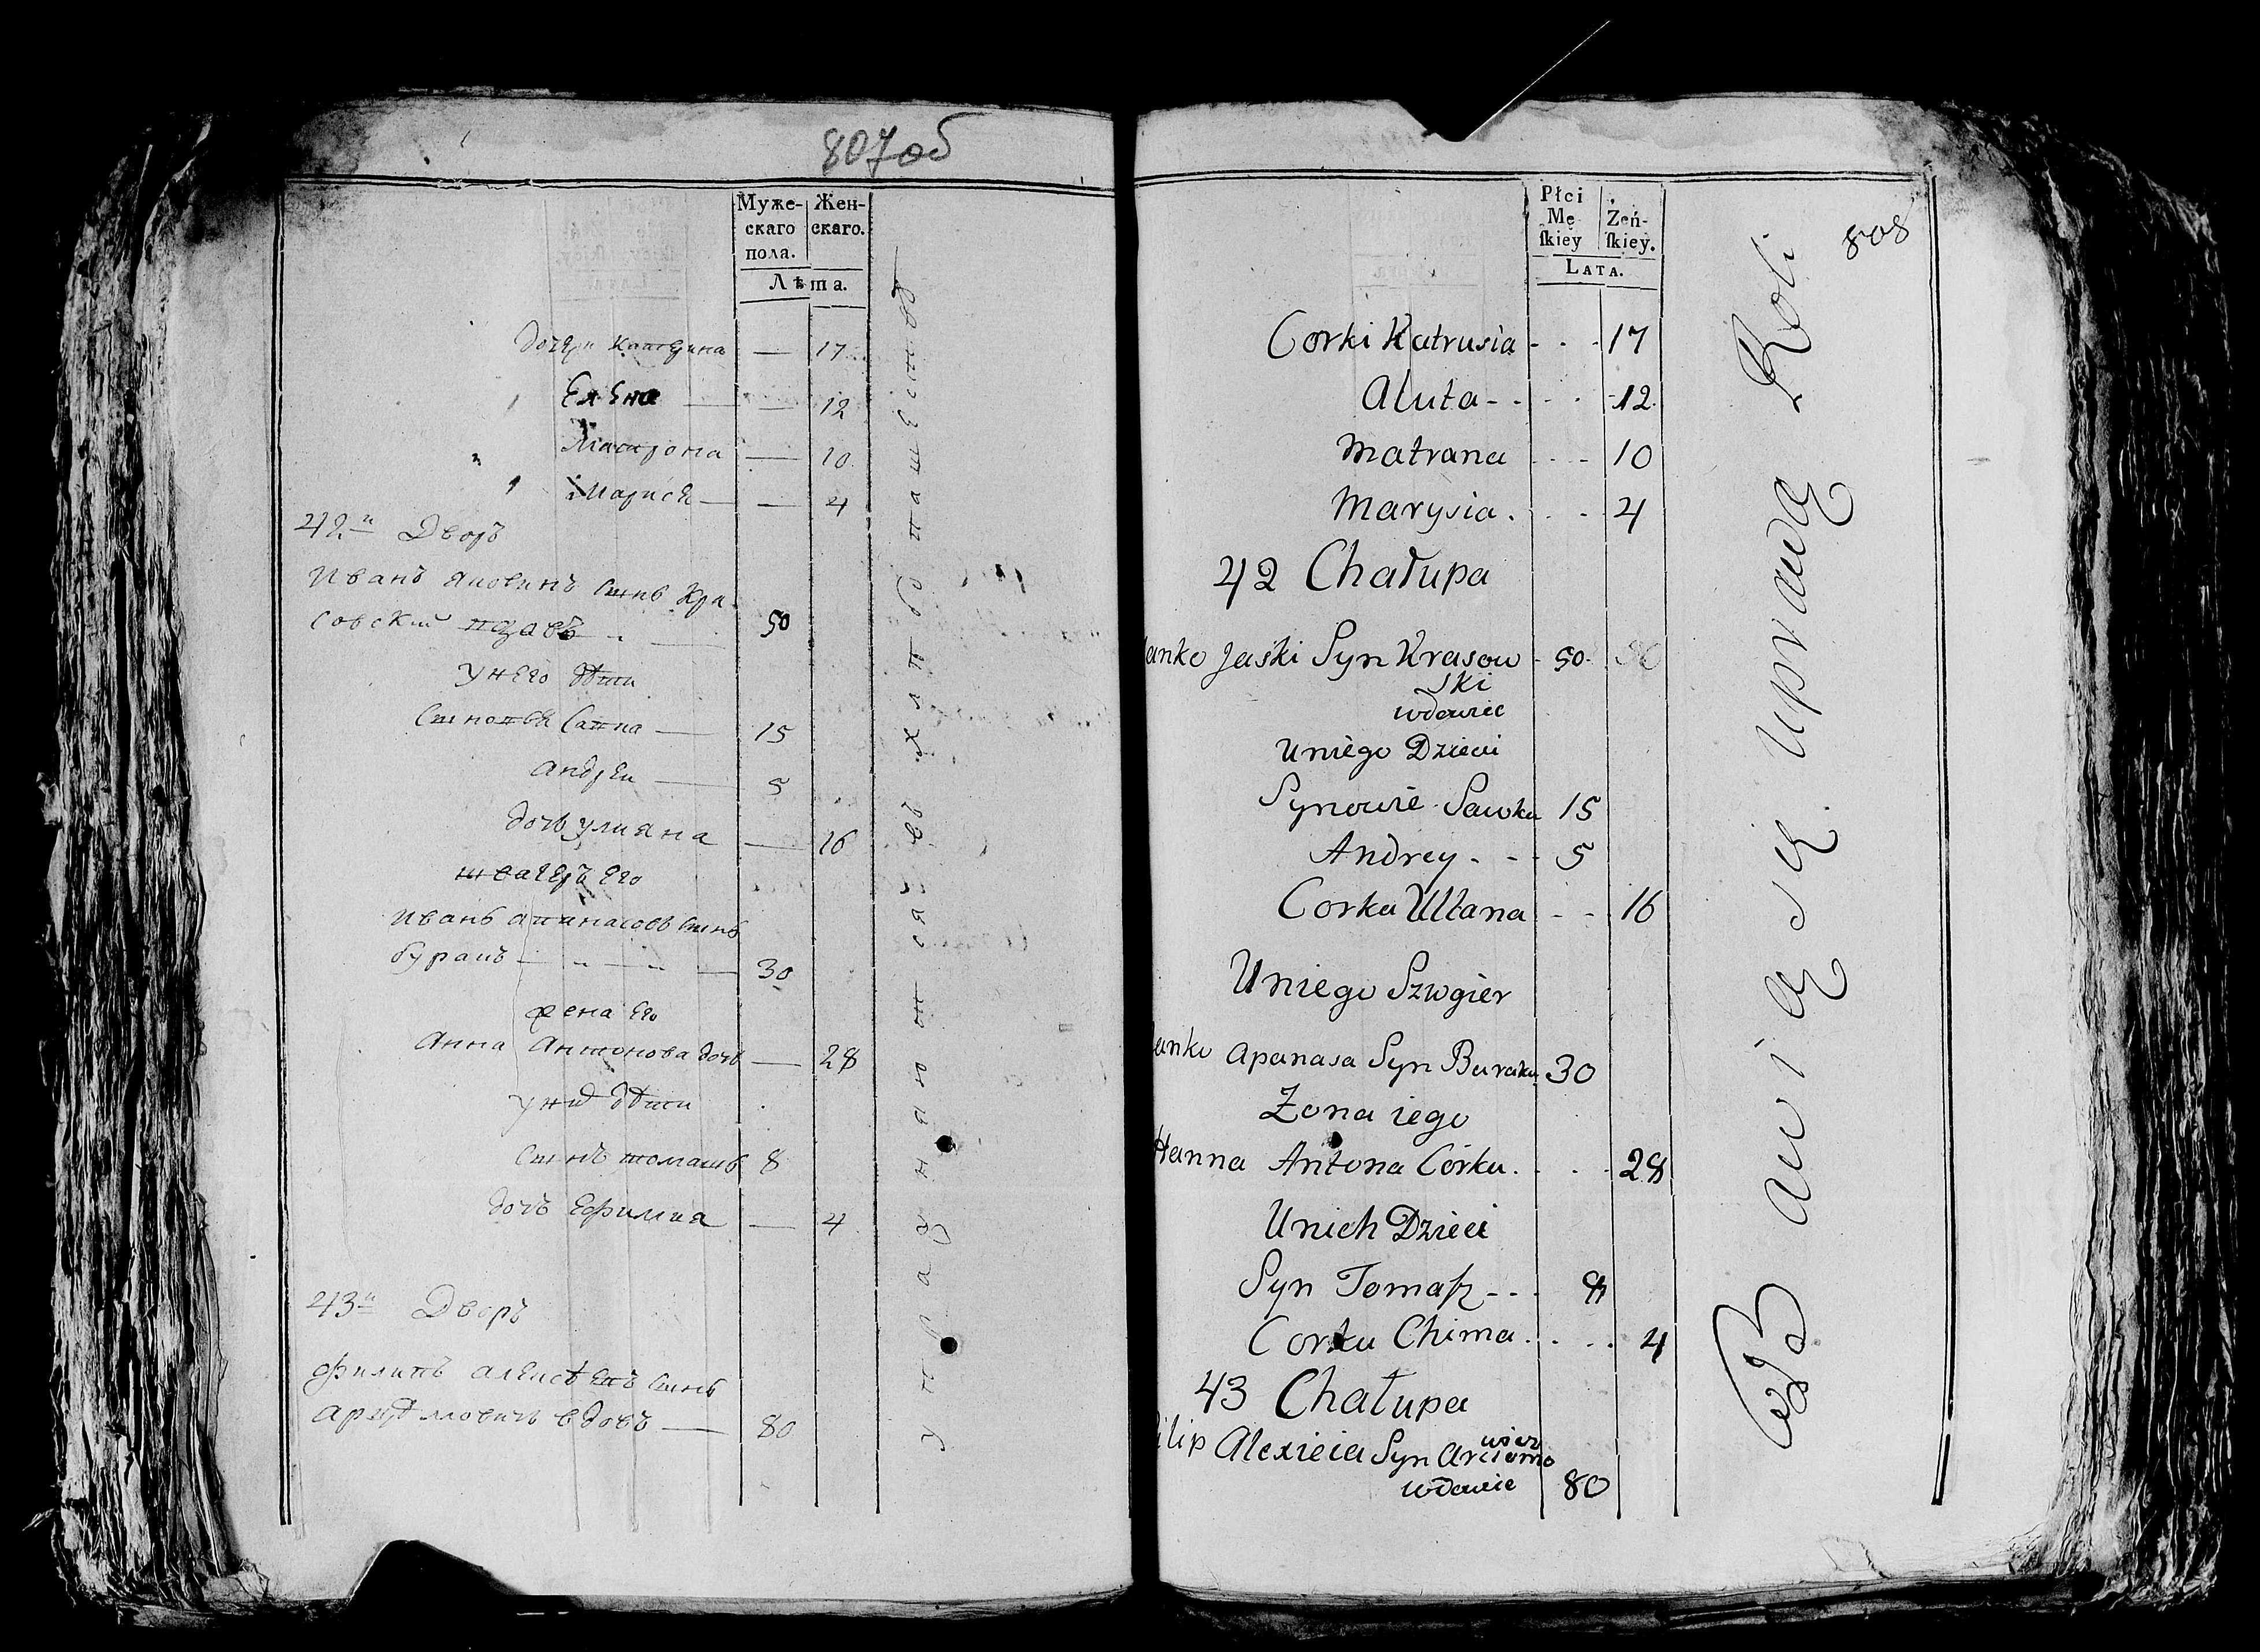 807об
Муже- Жен-
скаго скаго.
пола.
Лѣта.
дочери Катерина — 17
Елена — 12
Матрона — 10
Марися — 4
42й Дворъ
Иванъ Яковинъ сынъ Кра
совский вдовъ — 50
У него дѣти
Сыновья Савка — 15
Андреи — 5
дочь Улияна — 16
швагеръ Его
Иванъ Апанасовъ сынъ
буракъ — 30
жена Его
Анна Антонова дочь — 28
у них дѣти
Сынъ томашъ 8
дочь Ефимия — 4
43й Дворъ
Филипъ Алексѣевъ сынъ
Арцѣмовичъ вдовъ — 80
упражняются въ хлѣбопашествѣ
808
Płci
Mę Zeń-
skiey skiey.
LATA.
Corki Katrusia - - - 17
Aluta - - - - 12
Matrana - - - 10
Marysia. - - 4
42 Chałupa
anko Jaśki Syn Krasow - 50
ski
wdowiec
Uniego Dzieci
Synowie Sawka 15
Andrey - - - 5
Corka Ullana - - 16
Uniego Szwgier
anko Apanasa Syn Buraka 30
Zona iego
Hanna Antona Córka. - - - 28
Unich Dzieci
Syn Tomasz - - - 8
Corka Chima. - - - 4
43 Chałupa
ilip Alexieia Syn Arciomo
wicz
wdowie 80
Bawią się Uprawą Roli